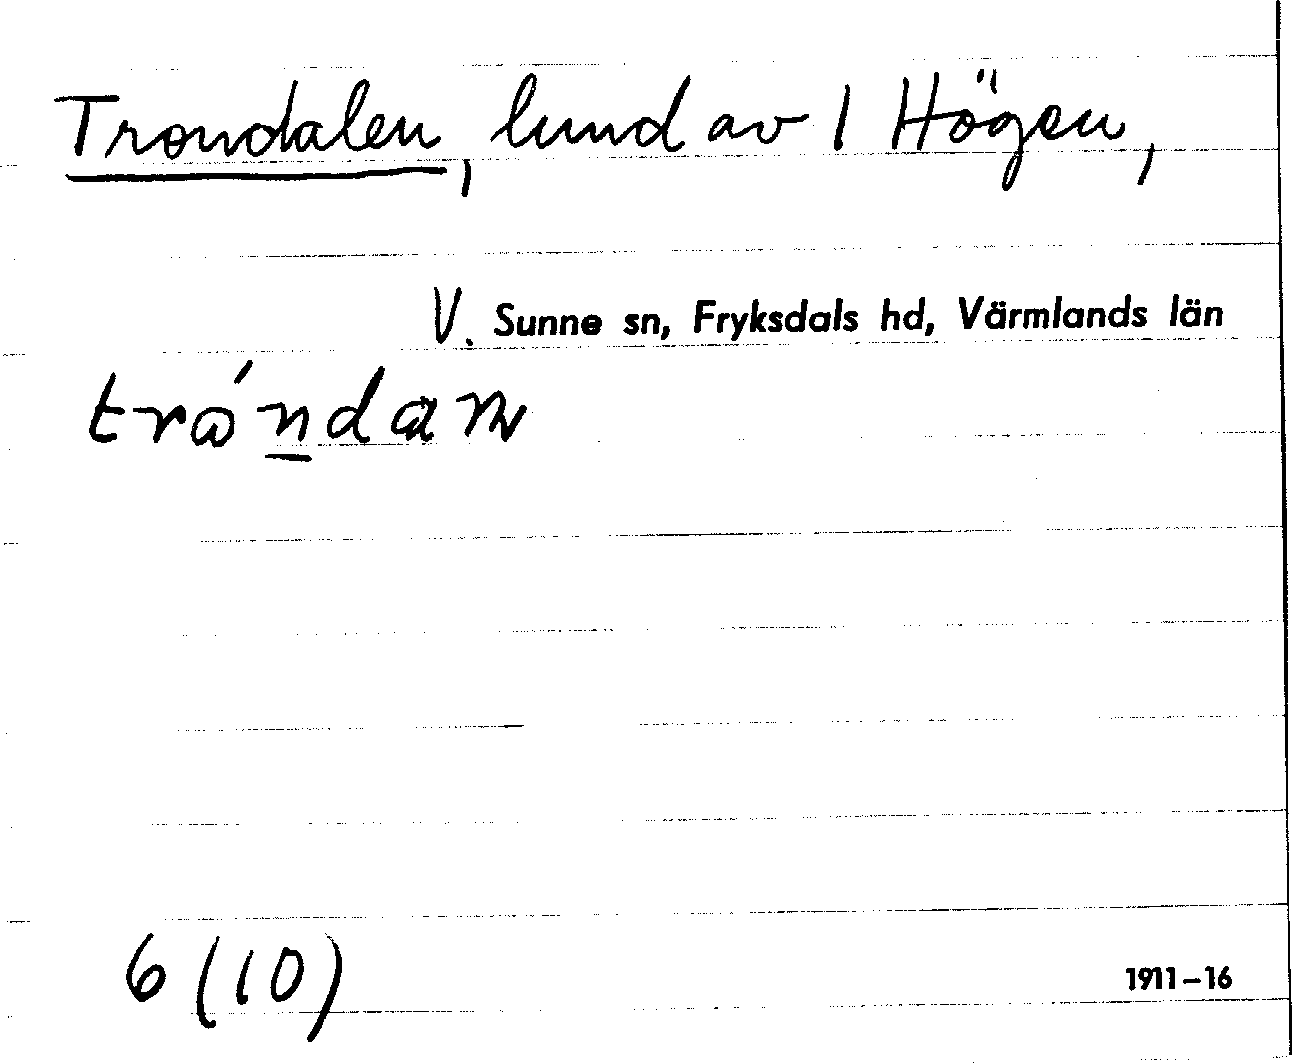 Trondalen, lund av 1 Högen,
V. Sunne sn, Fryksdals hd, Värmlands län
6 (10)
1911-16